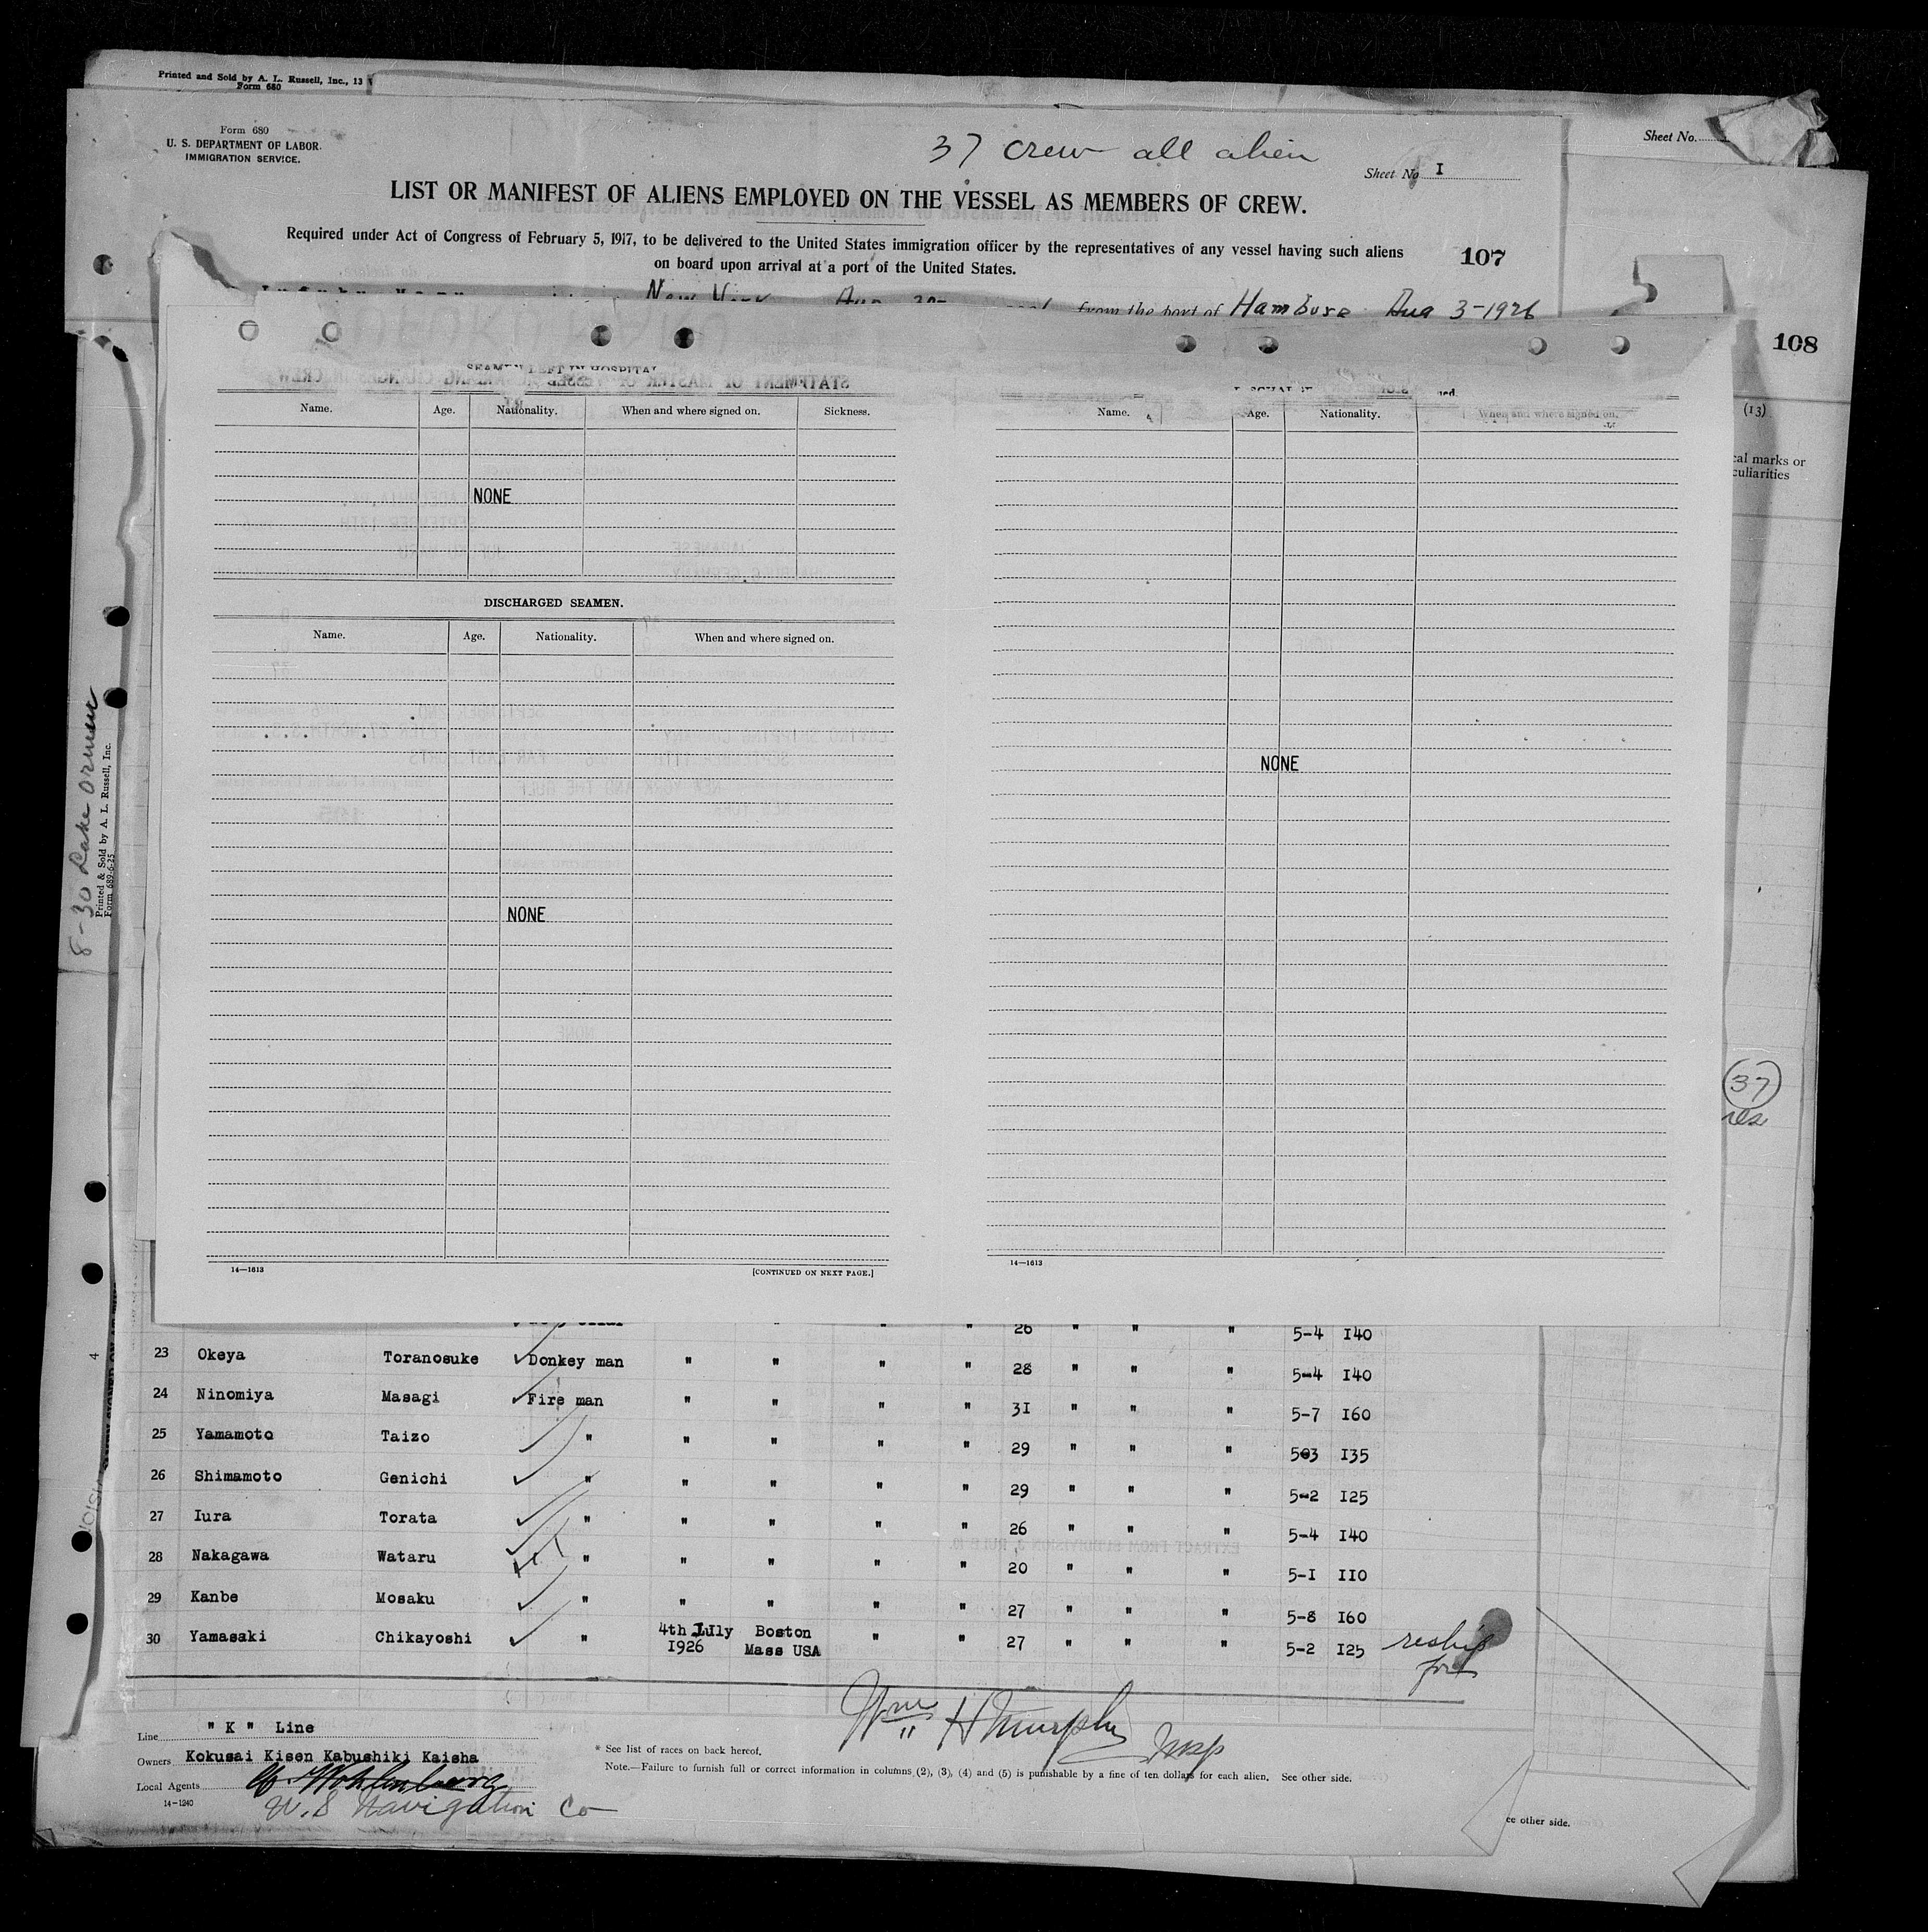 Printed and Sold by A. L. Russell, Inc., 13
Form 680
Form 680
U. S. DEPARTMENT OF LABOR.
IMMIGRATION SERVICE.
37 crew all alien
Sheet No. I
Sheet No.
LIST OR MANIFEST OF ALIENS EMPLOYED ON THE VESSEL AS MEMBERS OF CREW.
Required under Act of Congress of February 5, 1917, to be delivered to the United States immigration officer by the representatives of any vessel having such aliens
on board upon arrival at a port of the United States.
107
New York Aug 30 from the port of Hamburg Aug 3-1926
108
SEAMEN LEFT IN HOSPITAL
Name. Age. Nationality. When and where signed on. Sickness.
NONE
DISCHARGED SEAMEN.
Name. Age. Nationality. When and where signed on.
NONE
14—1613 [CONTINUED ON NEXT PAGE.]
Name. Age. Nationality. When and where signed on.
NONE
14—1613
(13)
cal marks or
culiarities
37
8-30 Lake Ormoc
Printed & Sold by A. L. Russell, Inc.
Form 689-6-25
4
" " " 26 " " " 5-4 I40
23 Okeya Toranosuke Donkey man " " " " 28 " " " 5-4 I40
24 Ninomiya Masagi Fire man " " " " 31 " " " 5-7 I60
25 Yamamoto Taizo " " " " " 29 " " " 5-3 I35
26 Shimamoto Genichi " " " " " 29 " " " 5-2 I25
27 Iura Torata " " " " " 26 " " " 5-4 I40
28 Nakagawa Wataru " " " " " 20 " " " 5-I II0
29 Kanbe Mosaku " " " " " 27 " " " 5-8 I60
30 Yamasaki Chikayoshi " 4th July I926 Boston Mass USA " " 27 " " " 5-2 I25 reship
for
Wm H Murphy Insp
Line " K " Line
Owners Kokusai Kisen Kabushiki Kaisha
Local Agents
U.S Navigation Co
14-1240
* See list of races on back hereof.
Note.—Failure to furnish full or correct information in columns (2), (3), (4) and (5) is punishable by a fine of ten dollars for each alien. See other side.
ee other side.